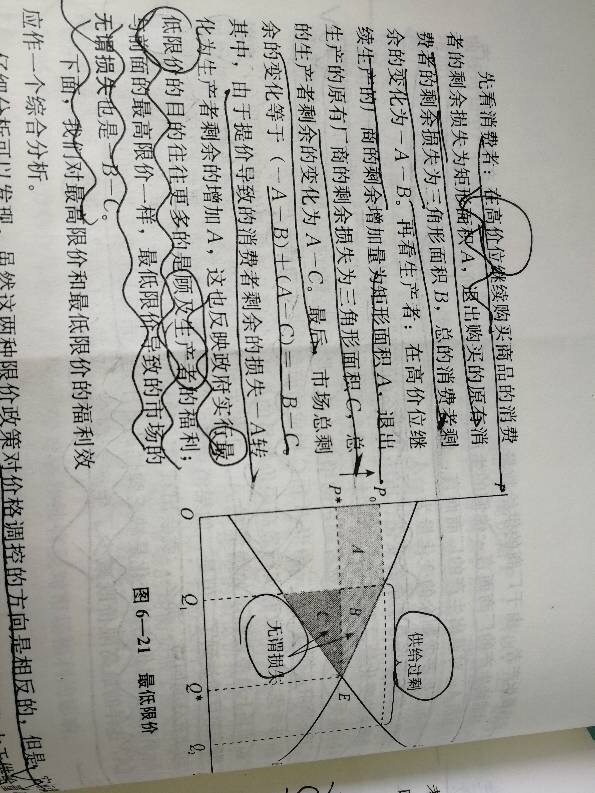 先看消费者：在高价位继续购买商品的消费
者的剩余损失为矩形面积A，退出购买的原有消
费者的剩余损失为三角形面积B，总的消费者剩
余的变化为－A－B。再看生产者：在高价位继
续生产的厂商的剩余增加量为矩形面积A，退出
生产的原有厂商的剩余损失为三角形面积C，总
的生产者剩余的变化为A－C。最后，市场总剩
余的变化等于（－A－B）＋（A－C）＝－B－C。
其中，由于提价导致的消费者剩余的损失－A转
化为生产者剩余的增加A，这也反映政府实行最
低限价的目的往往更多的是顾及生产者的福利；
与前面的最高限价一样，最低限价导致的市场的
无谓损失也是－B－C。
下面，我们对最高限价和最低限价的福利效
应作一个综合分析。
仔细分析可以发现，虽然这两种限价政策对价格调控的方向是相反的，但是，
P
P₀
P*
A
B
C
E
供给过剩
无谓损失
O
Q₁
Q*
Q₂
图 6—21 最低限价